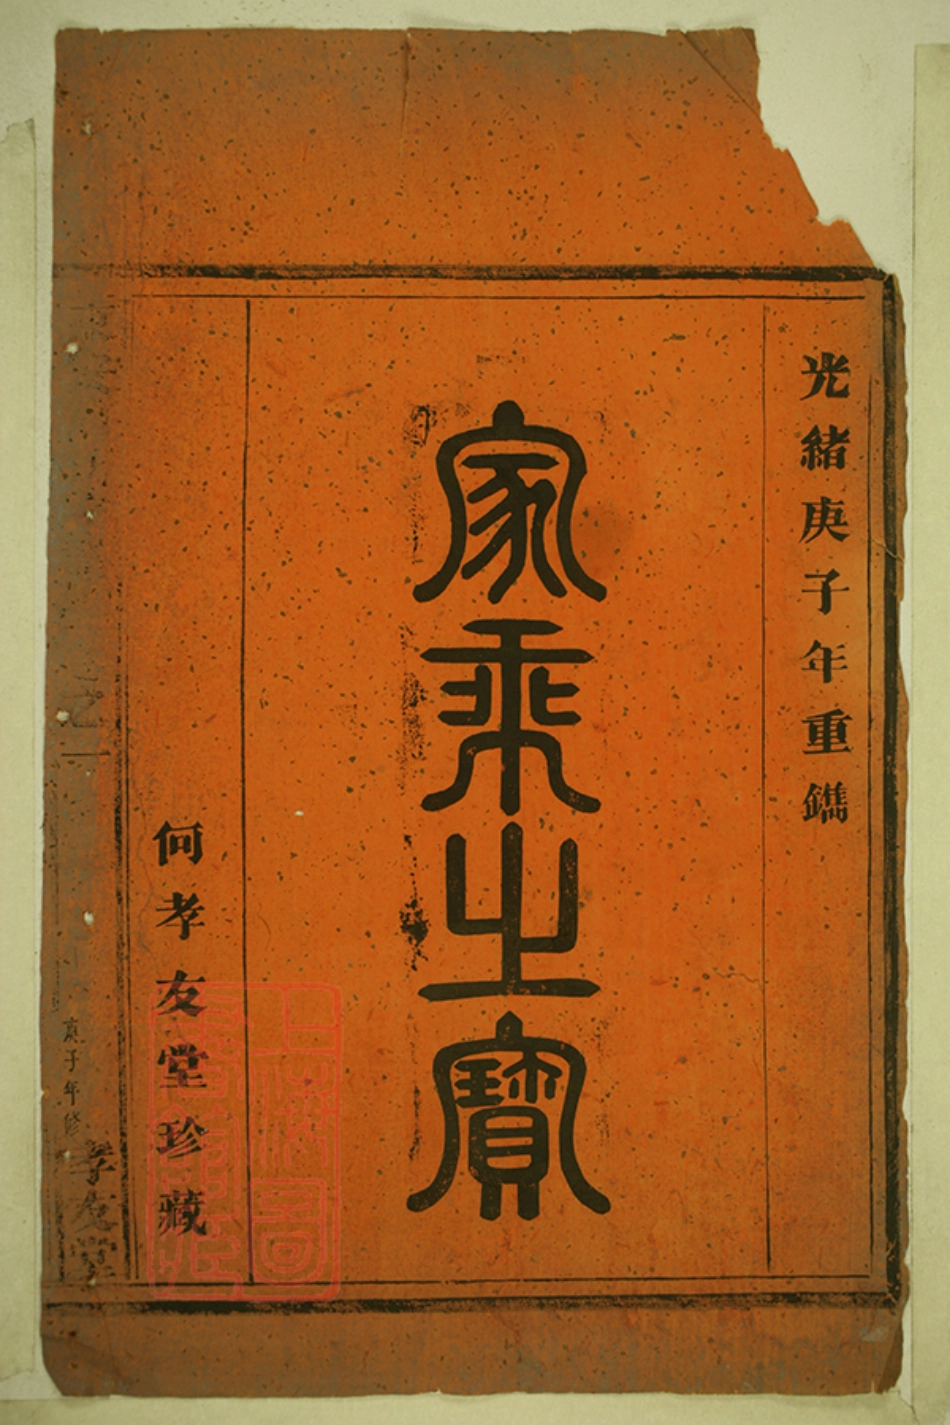 光緒庚子年重鐫
家乘之寶
何孝友堂珍藏
之一
庚子年修
孝友堂